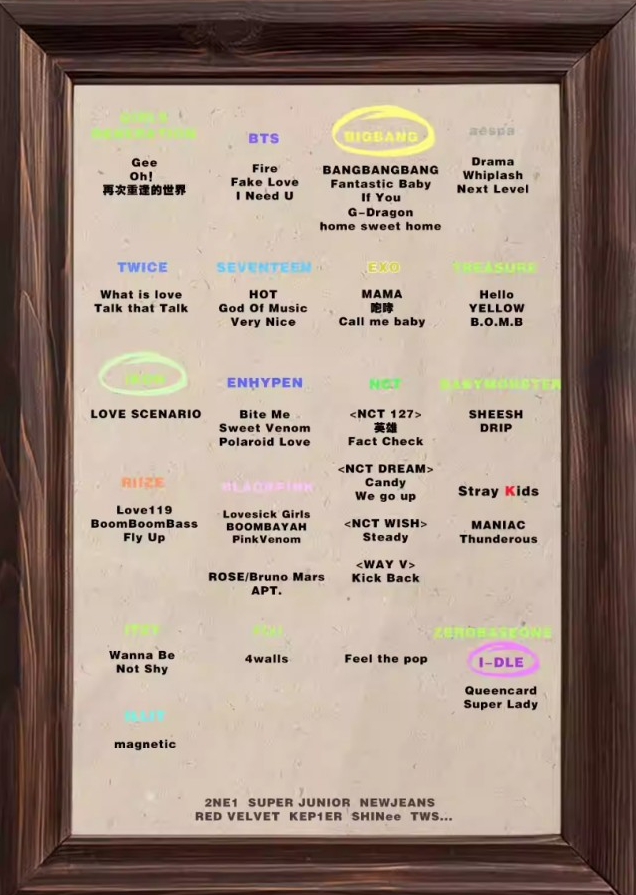 GIRLS
GENERATION
Gee
Oh!
再次重逢的世界
BTS
Fire
Fake Love
I Need U
BIGBANG
BANGBANGBANG
Fantastic Baby
If You
G-Dragon
home sweet home
aespa
Drama
Whiplash
Next Level
TWICE
What is love
Talk that Talk
SEVENTEEN
HOT
God Of Music
Very Nice
EXO
MAMA
咆哮
Call me baby
TREASURE
Hello
YELLOW
B.O.M.B
iKON
LOVE SCENARIO
ENHYPEN
Bite Me
Sweet Venom
Polaroid Love
NCT
<NCT 127>
英雄
Fact Check
<NCT DREAM>
Candy
We go up
<NCT WISH>
Steady
<WAY V>
Kick Back
BABYMONSTER
SHEESH
DRIP
RIIZE
Love119
BoomBoomBass
Fly Up
BLACKPINK
Lovesick Girls
BOOMBAYAH
PinkVenom
ROSE/Bruno Mars
APT.
Stray Kids
MANIAC
Thunderous
ITZY
Wanna Be
Not Shy
f(x)
4walls
ZEROBASEONE
Feel the pop
I-DLE
Queencard
Super Lady
ILLIT
magnetic
2NE1 SUPER JUNIOR NEWJEANS
RED VELVET KEP1ER SHINee TWS...